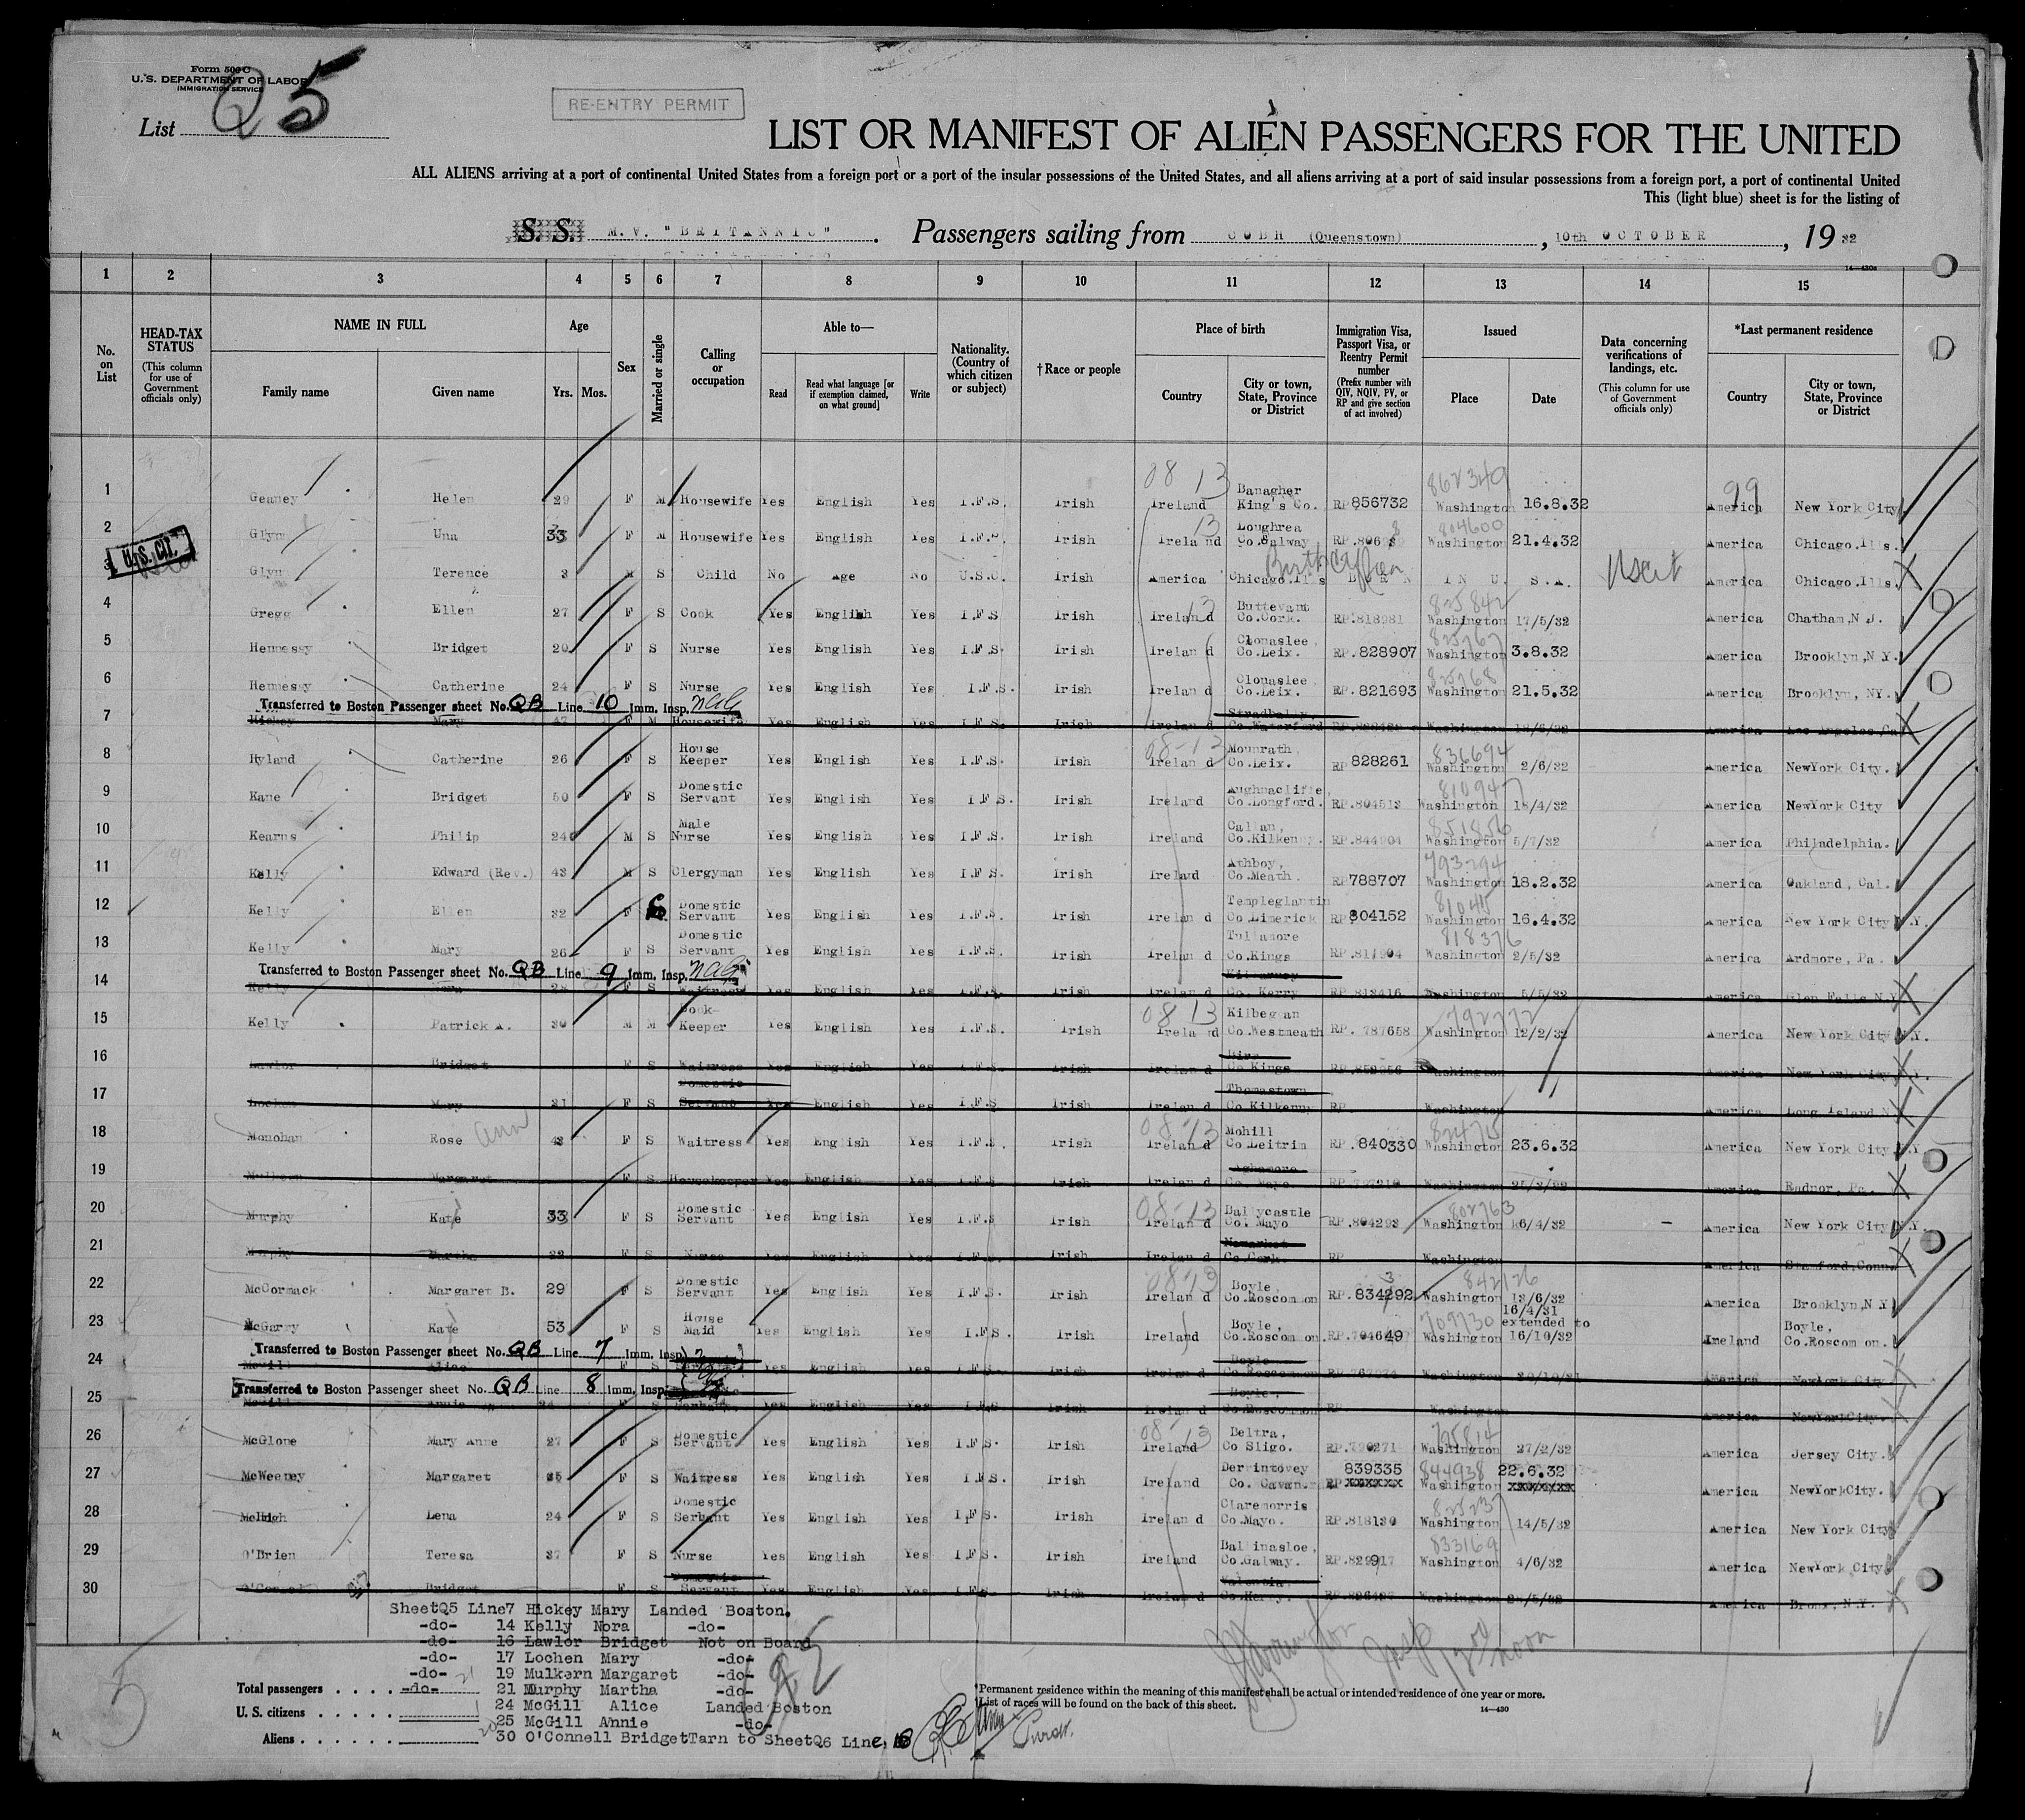 Form 500 C
U. S. DEPARTMENT OF LABOR
IMMIGRATION SERVICE
List Q 5
RE-ENTRY PERMIT
LIST OR MANIFEST OF ALIEN PASSENGERS FOR THE UNITED
ALL ALIENS arriving at a port of continental United States from a foreign port or a port of the insular possessions of the United States, and all aliens arriving at a port of said insular possessions from a foreign port, a port of continental United
This (light blue) sheet is for the listing of
S. S. M.V. "BRITANNIC". Passengers sailing from COBH (Queenstown), 10th OCTOBER, 1932
14-430a
1 2 3 4 5 6 7 8 9 10 11 12 13 14 15
No. on List
HEAD-TAX STATUS (This column for use of Government officials only)
NAME IN FULL Family name Given name
Age Yrs. Mos.
Sex
Married or single
Calling or occupation
Able to— Read Read what language [or if exemption claimed, on what ground] Write
Nationality. (Country of which citizen or subject)
†Race or people
Place of birth Country City or town, State, Province or District
Immigration Visa, Passport Visa, or Reentry Permit number (Prefix number with QIV, NQIV, PV, or RP and give section of act involved)
Issued Place Date
Data concerning verifications of landings, etc. (This column for use of Government officials only)
*Last permanent residence Country City or town, State, Province or District
08 13 862349 99
1 Geaney Helen 29 F M Housewife Yes English Yes I.F.S. Irish Ireland Banagher King's Co. RP 856732 Washington 16.8.32 America New York City
13 804600
2 Glyn Una 33 F M Housewife Yes English Yes I.F.S. Irish Ireland Loughrea Co. Galway RP. Washington 21.4.32 America Chicago.Ills.
1 U.S. CIT.
3 Glyn Terence 3 M S Child No Age No U.S.C. Irish America Chicago.Ills BORN IN U.S.A. America Chicago.Ills.
13 825842
4 Gregg Ellen 27 F S Cook Yes English Yes I.F.S Irish Ireland Buttevant Co.Cork. RP.818981 Washington 17/5/32 America Chatham,N J.
825767
5 Hennessy Bridget 20 F S Nurse Yes English Yes I.F.S. Irish Ireland Clonaslee, Co.Leix. RP.828907 Washington 3.8.32 America Brooklyn,N.Y.
825768
6 Hennessy Catherine 24 F S Nurse Yes English Yes I.F.S. Irish Ireland Clonaslee, Co.Leix. RP.821693 Washington 21.5.32 America Brooklyn, NY.
Transferred to Boston Passenger sheet No. QB Line 10 Imm. Insp.
7 Hickey Mary 47 F M Housewife Yes English Yes I.F.S. Irish Ireland Stradbally, Co.Waterford Washington America Los Angeles Ca
08-13 836694
8 Hyland Catherine 26 F S House Keeper Yes English Yes I.F.S. Irish Ireland Mounrath, Co.Leix. RP 828261 Washington 2/6/32 America NewYork City.
810947
9 Kane Bridget 50 F S Domestic Servant Yes English Yes I.F.S. Irish Ireland Aughnacliffe, Co.Longford. RP.804513 Washington 18/4/32 America NewYork City
851856
10 Kearns Philip 24 M S Male Nurse Yes English Yes I.F.S. Irish Ireland Callan, Co.Kilkenny. RP.844904 Washington 5/7/32 America Philadelphia.
793294
11 Kelly Edward (Rev.) 43 M S Clergyman Yes English Yes I.F.S. Irish Ireland Athboy, Co.Meath. RP 788707 Washington 18.2.32 America Oakland, Cal.
12 Kelly Ellen 32 F S Domestic Servant Yes English Yes I.F.S. Irish Ireland Templeglantin Co.Limerick RP 804152 Washington 16.4.32 America New York City N.Y.
818376
13 Kelly Mary 26 F S Domestic Servant Yes English Yes I.F.S. Irish Ireland Tullamore Co.Kings RP. Washington 2/5/32 America Ardmore, Pa.
Transferred to Boston Passenger sheet No. QB Line 9 Imm. Insp.
14 Kelly Nora 28 F S Waitress Yes English Yes I.F.S. Irish Ireland Killarney Co. Kerry RP 813416 Washington 5/5/32 America Glen Falls N.Y
08 13 792272
15 Kelly Patrick A. 30 M M Book-Keeper Yes English Yes I.F.S. Irish Ireland Kilbegan Co.Westmeath RP. 787658 Washington 12/2/32 America New York City N.Y.
16 Lawlor Bridget F S Waitress Yes English Yes I.F.S. Irish Ireland Birr Co Kings RP. Washington America New York City N.Y.
17 Lochen Mary 21 F S Domestic Servant Yes English Yes I.F.S Irish Ireland Thomastown Co Kilkenny RP Washington America Long Island N
08-13
18 Monohan Rose Ann 43 F S Waitress Yes English Yes I.F.S. Irish Ireland Mohill Co.Leitrim RP.840330 Washington 23.6.32 America New York City N.Y
19 Mulkern Margaret F S Housekeeper Yes English Yes I.F.S Irish Ireland Aghamore Co. Mayo RP. Washington America Radnor, Pa.
08-13 802763
20 Murphy Kate 33 F S Domestic Servant Yes English Yes I.F.S Irish Ireland Ballycastle Co. Mayo RP.804293 Washington 6/4/32 America New York City N.Y.
21 Murphy Martha F S Nurse Yes English Yes I.F.S. Irish Ireland Newmarket Co Cork. RP Washington America Stamford,Conn.
08-13 842126
22 McCormack Margaret B. 29 F S Domestic Servant Yes English Yes I.F.S. Irish Ireland Boyle, Co.Roscommon RP.834292 3 Washington 18/6/32 America Brooklyn,N Y
709730
23 McGarry Kate 53 F S House Maid Yes English Yes I.F.S. Irish Ireland Boyle, Co.Roscommon. RP.704649 Washington 16/4/31 extended to 16/10/32 Ireland Boyle, Co.Roscommon.
Transferred to Boston Passenger sheet No. QB Line 7 Imm. Insp.
24 McGill Alice F S Yes English Yes I.F.S. Irish Ireland Boyle Co.Roscommon RP. Washington America NewYork City.
Transferred to Boston Passenger sheet No. QB Line 8 Imm. Insp.
25 McGill Annie F S Servant Yes English Yes I.F.S Irish Ireland Boyle, Co.Roscommon RP. Washington America NewYorkCity.
08-13 795814
26 McGlone Mary Anne 27 F S Domestic Servant Yes English Yes I.F.S. Irish Ireland Beltra, Co Sligo. RP.790271 Washington 27/2/32 America Jersey City.
844938
27 McWeeney Margaret F S Waitress Yes English Yes I.F.S. Irish Ireland Derrintovey Co. Cavan. RP 839335 XXXXXX Washington 22.6.32 XXXXXXX America NewYorkCity.
825237
28 McHugh Lena 24 F S Domestic Servant Yes English Yes I.F.S. Irish Ireland Claremorris Co.Mayo. RP.818130 Washington 14/5/32 America New York City
833169
29 O'Brien Teresa 37 F S Nurse Yes English Yes I.F.S. Irish Ireland Ballinasloe, Co.Galway. RP.829917 Washington 4/6/32 America NewYorkCity
30 O'Connel Bridget F S Domestic Servant Yes English Yes I.F.S. Irish Ireland Valencia, Co.Kerry. RP. Washington America Bronx, N.Y.
SheetQ5 Line7 Hickey Mary Landed Boston.
-do- 14 Kelly Nora -do-
-do- 16 Lawlor Bridget Not on Board
-do- 17 Lochen Mary -do-
-do- 19 Mulkern Margaret -do-
Total passengers . . . . 21
-do- 21 Murphy Martha -do-
24 McGill Alice Landed Boston
U. S. citizens . . . . . 1
25 McGill Annie -do-
Aliens . . . . . . 20
30 O'Connell Bridget Tarn to SheetQ6 Line,
*Permanent residence within the meaning of this manifest shall be actual or intended residence of one year or more.
†List of races will be found on the back of this sheet.
14-430